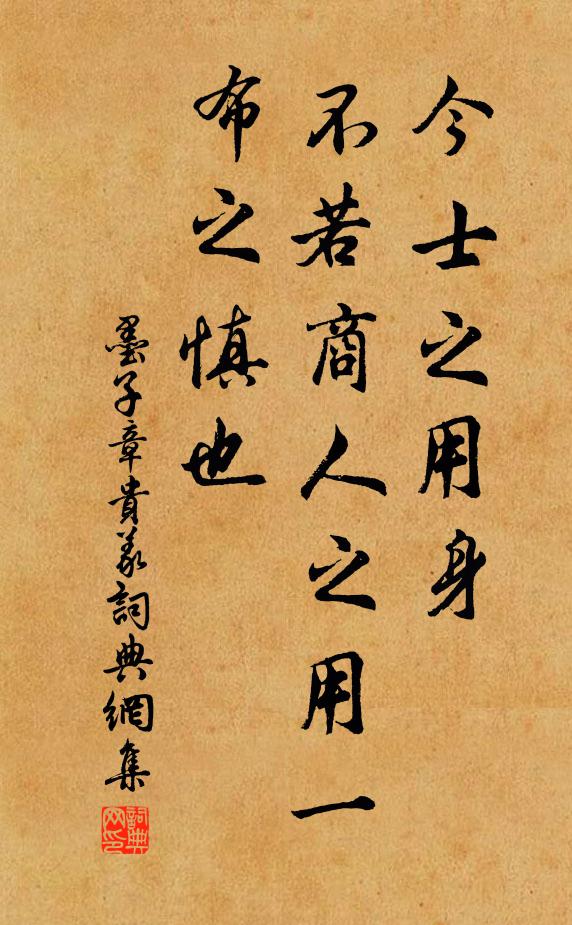 今士之用身
不若商人之用一
布之慎也
墨子章貴義詞典網集
詞典
网印